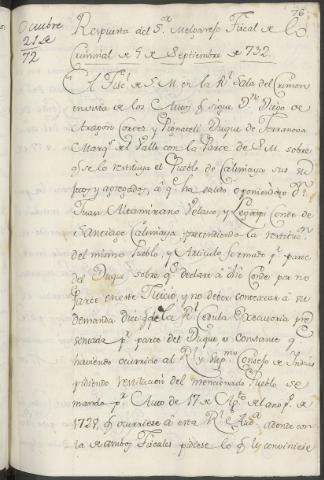 76
Octubre
21 de
72
Respuesta del S.r Melgarejo Fiscal de lo
Criminal de 7 de Septiembre de 732.
El Fisc.l de S. M. en la R.l Sala del Crimen
en vista de los Autos q sigue D.n Diego de
Aragon Cortes y Pignateli Duque de Terranova
Marq.s del Valle con la Parte de S. M. sobre
q se le restituya el Pueblo de Calimaya sus su
jetos y agregados, á q.e ha salido oponiendose D.n
Juan Altamirano Velasco, y Legaspi Conde de
Santiago Calimaya, pretendiendo la restituc.n
del mismo Pueblo, y Articulo formado p.r parte
del Duque sobre q.e se declare á dho Conde por no
Parte en este Juicio, y no deber contextar á su
demanda dice q de la R.l Cedula Executoria pre
sentada p.r parte del Duque es constante q
haviendo ocurrido al R.l y Sup.mo Consejo de Indias
pidiendo restitucion del mencionado Pueblo se
mandó p.r Auto de 17 de Ag.to del año p.o de
1728. q ocurriese á esta R.l Aud.a adonde con
la de ambos Fiscales pidiese lo q le conviniese